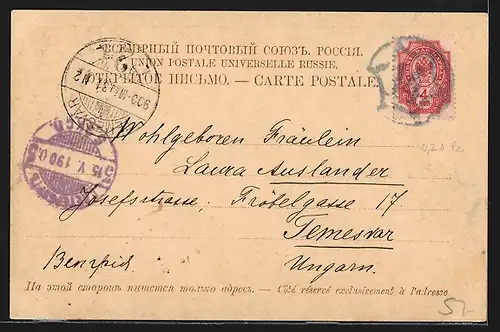 ВСЕМІРНЫЙ ПОЧТОВЫЙ СОЮЗЪ. РОССІЯ.
UNION POSTALE UNIVERSELLE RUSSIE.
ОТКРЫТОЕ ПИСЬМО. — CARTE POSTALE
4
Wohlgeboren Fräulein
Laura Auslander
Josefstrasse, Fröbelgasse 17
Temesvar
Венгрія
Ungarn.
На этой сторонѣ пишется только адресъ. — Côté réservé exclusivement à l'adresse